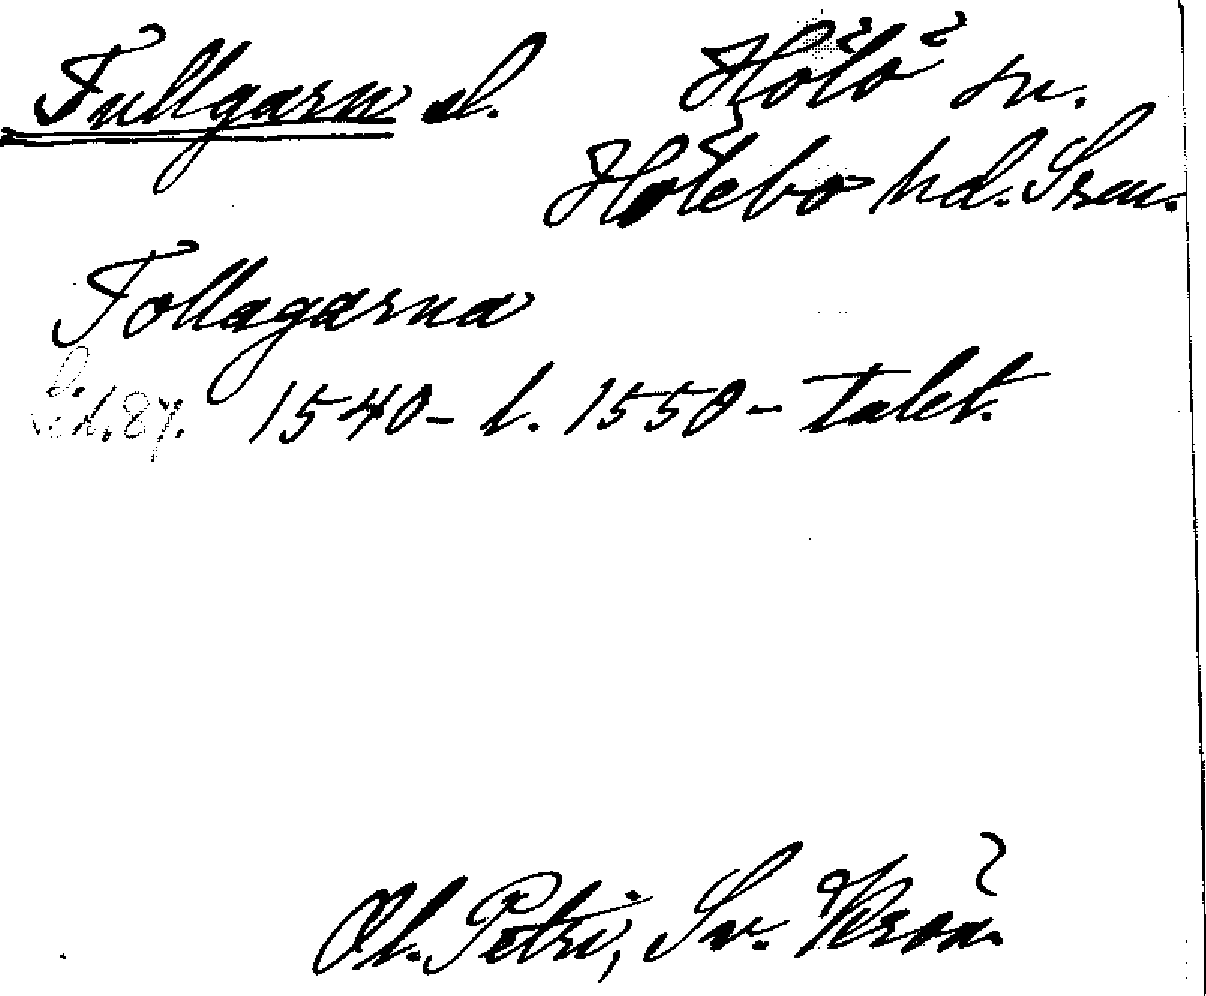 Tullgarn sl. Hölö sn.
Hölebo hd. Srm.
Tollagarna
Sid. 87. 1540- t. 1550-talet.
Ol. Petri, Sv. Krön.